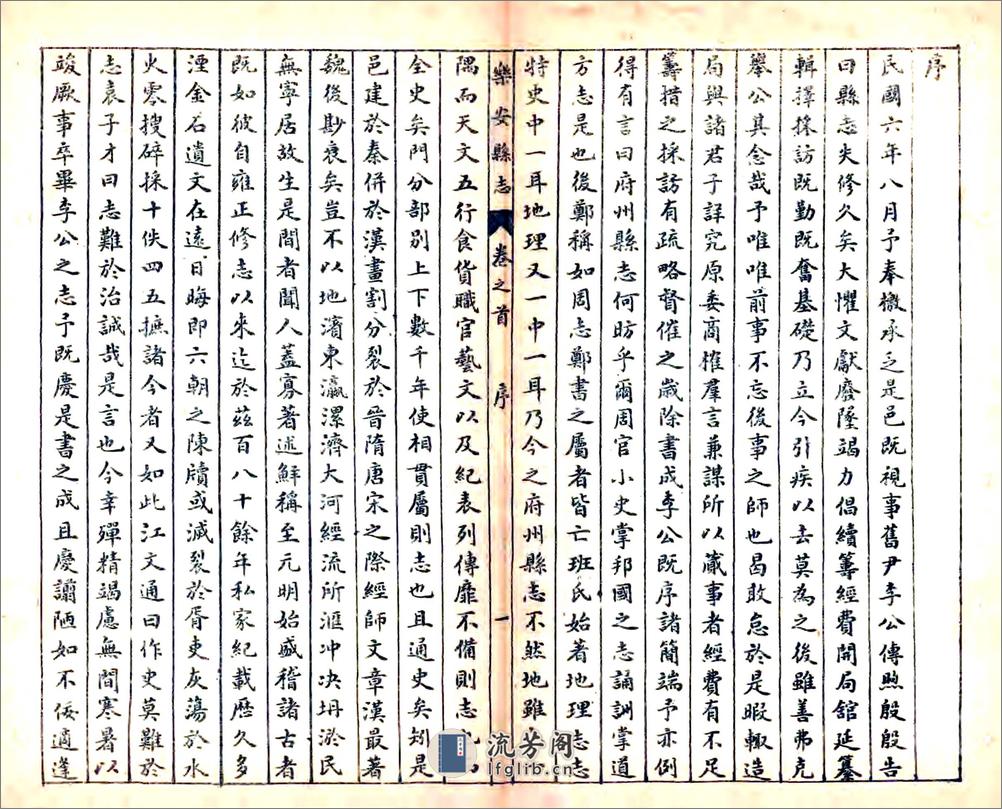 序
民國六年八月予奉檄承乏是邑既視事舊尹李公傳煦殷殷告
曰縣志失修久矣大懼文獻廢墜竭力倡續籌經費開局舘延纂
輯擇採訪既勤既奮基礎乃立今引疾以去莫為之後雖善弗克
舉公其念哉予唯唯前事不忘後事之師也曷敢怠於是暇輒造
局與諸君子詳究原委商榷羣言兼謀所以蕆事者經費有不足
籌措之採訪有疏略督催之歲除書成李公既序諸簡端予亦例
得有言曰府州縣志何昉乎爾周官小史掌邦國之志誦訓掌道
方志是也後鄭稱如周志鄭書之屬者皆亡班氏始著地理志志
特史中一耳地理又一中一耳乃今之府州縣志不然地雖一
樂安縣志 卷之首 序 一
隅而天文五行食貨職官藝文以及紀表列傳靡不備則志也
全史矣門分部別上下數千年使相貫屬則志也且通史矣矧是
邑建於秦併於漢畫割分裂於晉隋唐宋之際經師文章漢最著
魏後尠衰矣豈不以地濱東瀛漯濟大河經流所滙冲决坍淤民
無寧居故生是間者聞人蓋寡著述鮮稱至元明始盛稽諸古者
既如彼自雍正修志以來迄於茲百八十餘年私家紀載歷久多
湮金石遺文在遠日晦即六朝之陳牘或滅裂於胥吏灰蕩於水
火零搜碎採十佚四五摭諸今者又如此江文通曰作史莫難於
志袁子才曰志難於治誠哉是言也今幸殫精竭慮無間寒暑以
竣厥事卒畢李公之志予既慶是書之成且慶譾陋如不佞適逢
流芳阁
lfglib.cn